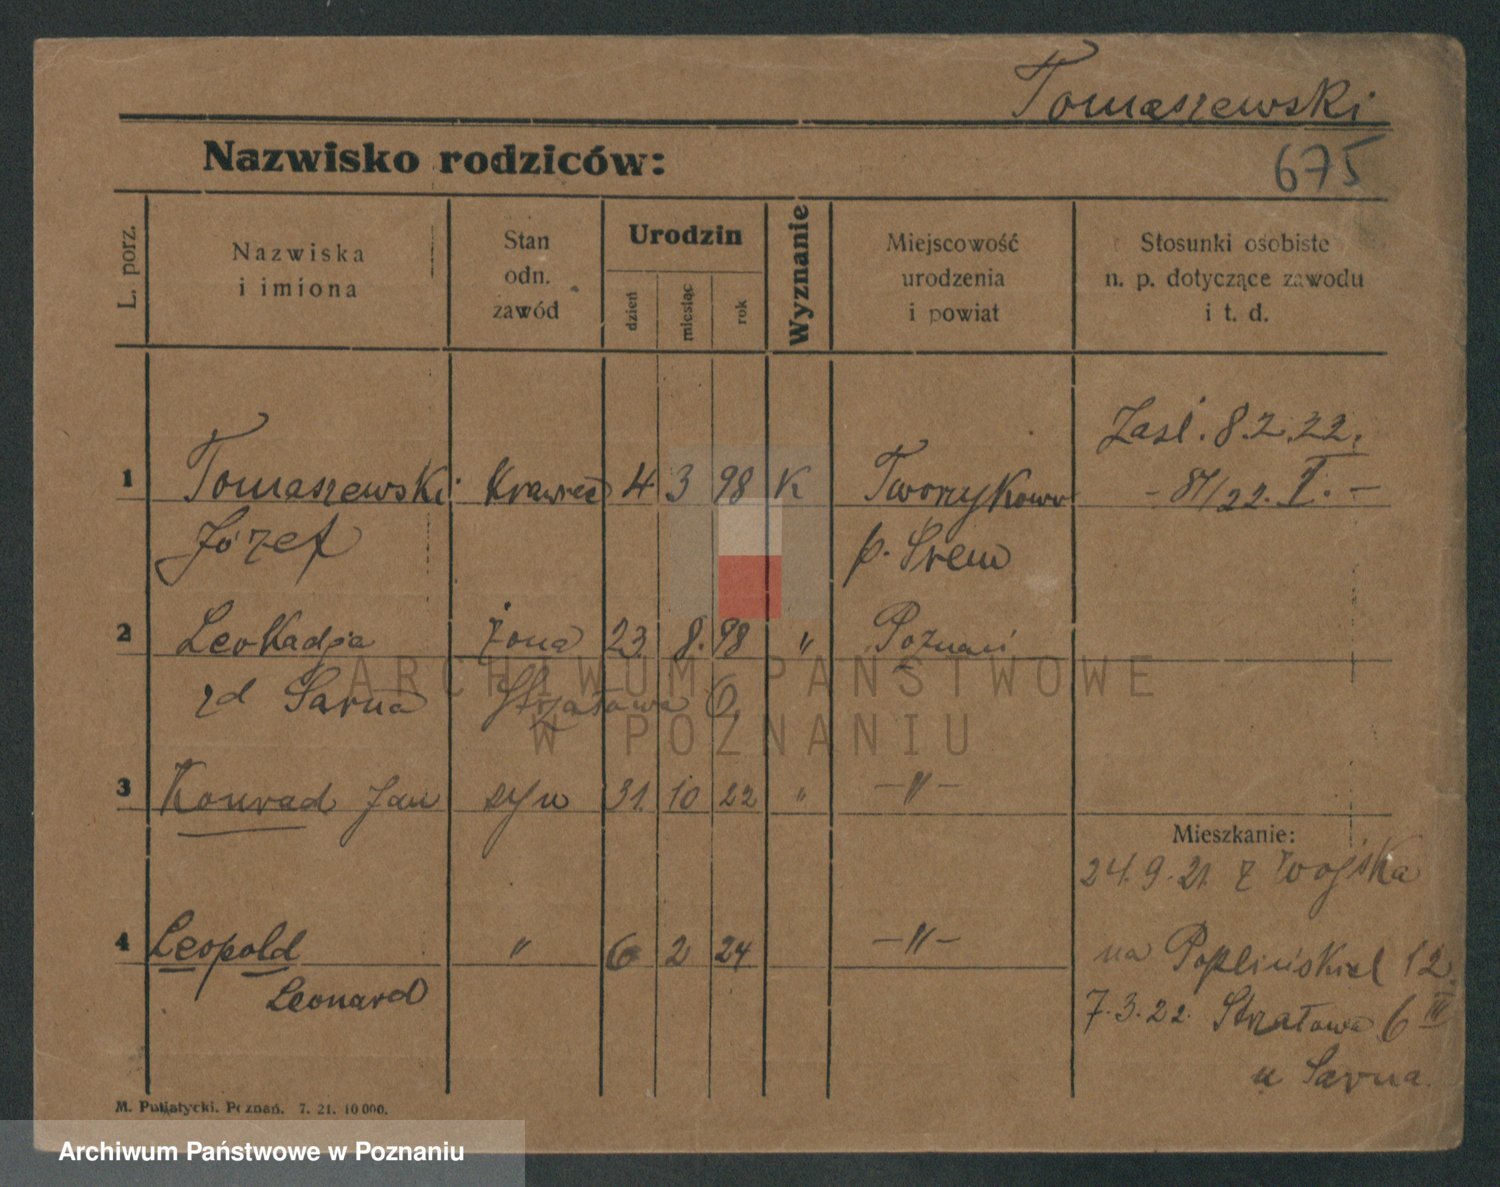 Tomaszewski
675
Nazwisko rodziców:
L. porz.
Nazwiska i imiona
Stan odn. zawód
Urodzin
dzień miesiąc rok
Wyznanie
Miejscowość urodzenia i powiat
Stosunki osobiste n. p. dotyczące zawodu i t. d.
Zaśl. 8.2.22.
1 Tomaszewski Krawiec 4 3 98 K Tworzykowo - 87/22. I. -
Józef p. Śrem
2 Leokadja żona 23 8. 98 " Poznań
zd Sarna Strzałowa 6,
3 Konrad Jan syn 31. 10 22 " -"-
Mieszkanie:
24.9.21. z wojska
4 Leopold " 6 2 24 -"- na Poplińskich 12
Leonard 7.3.22. Strzałowa 6 III
u Sarna.
M. Putiatycki. Poznań. 7. 21. 10 000.
ARCHIWUM PAŃSTWOWE
W POZNANIU
Archiwum Państwowe w Poznaniu